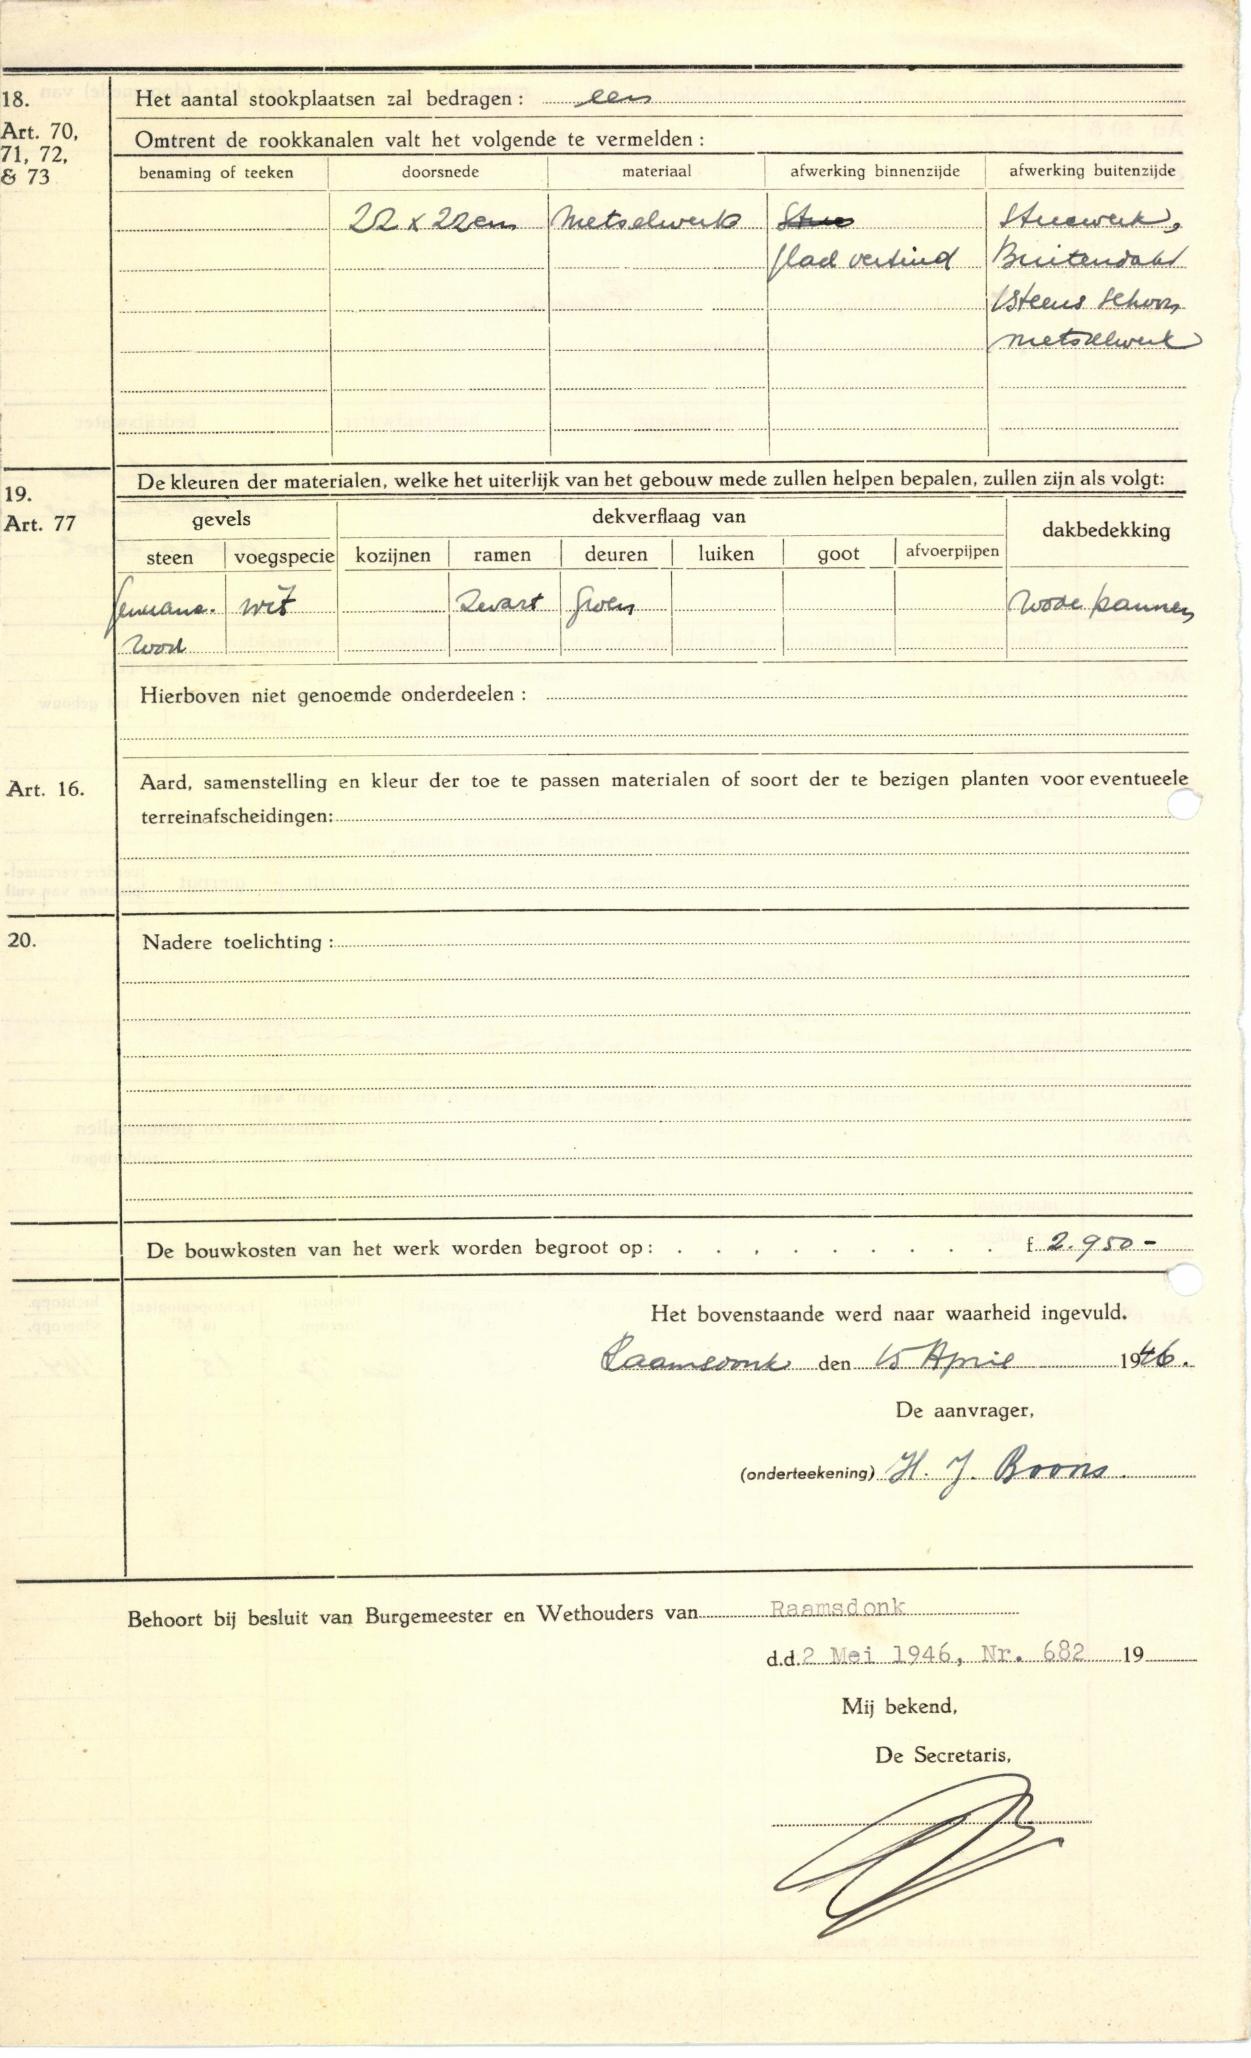 18.
Art. 70,
71, 72,
& 73
Het aantal stookplaatsen zal bedragen : een
Omtrent de rookkanalen valt het volgende te vermelden :
benaming of teeken doorsnede materiaal afwerking binnenzijde afwerking buitenzijde
22 x 22 cm Metselwerk Stuc Stucwerk,
glad vertind Buitendaks
1 Steens schoon
metselwerk
19.
Art. 77
De kleuren der materialen, welke het uiterlijk van het gebouw mede zullen helpen bepalen, zullen zijn als volgt:
gevels dekverflaag van dakbedekking
steen voegspecie kozijnen ramen deuren luiken goot afvoerpijpen
wit Zwart Groen roode pannen
rood
Hierboven niet genoemde onderdeelen :
Art. 16.
Aard, samenstelling en kleur der toe te passen materialen of soort der te bezigen planten voor eventueele
terreinafscheidingen:
20.
Nadere toelichting :
De bouwkosten van het werk worden begroot op: . . . . . . . . . f 2.950 -
Het bovenstaande werd naar waarheid ingevuld.
Raamsdonk den 15 April 1946.
De aanvrager,
(onderteekening) H. J. Boons.
Behoort bij besluit van Burgemeester en Wethouders van Raamsdonk
d.d. 2 Mei 1946, Nr. 682 19
Mij bekend,
De Secretaris,